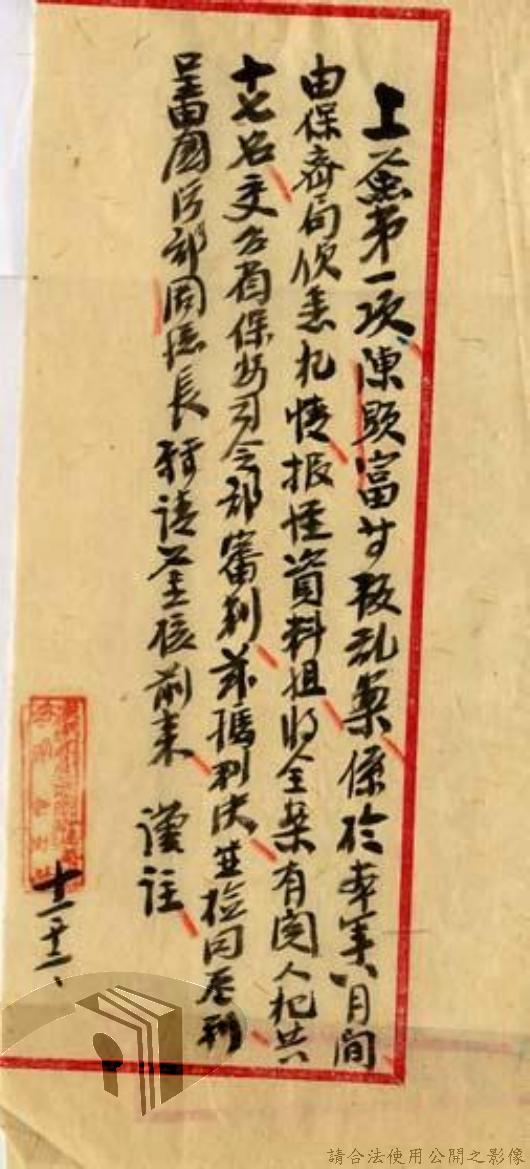 上簽第一項陳顯富等叛亂案係於本年八月間
由保密局偵悉犯情報經資料組將全案有關人犯共
十七名交台省保安司令部審判茲據判決並檢同卷判
呈由國防部周總長轉請鈞核前來 謹註
十一、廿二、
請合法使用公開之影像